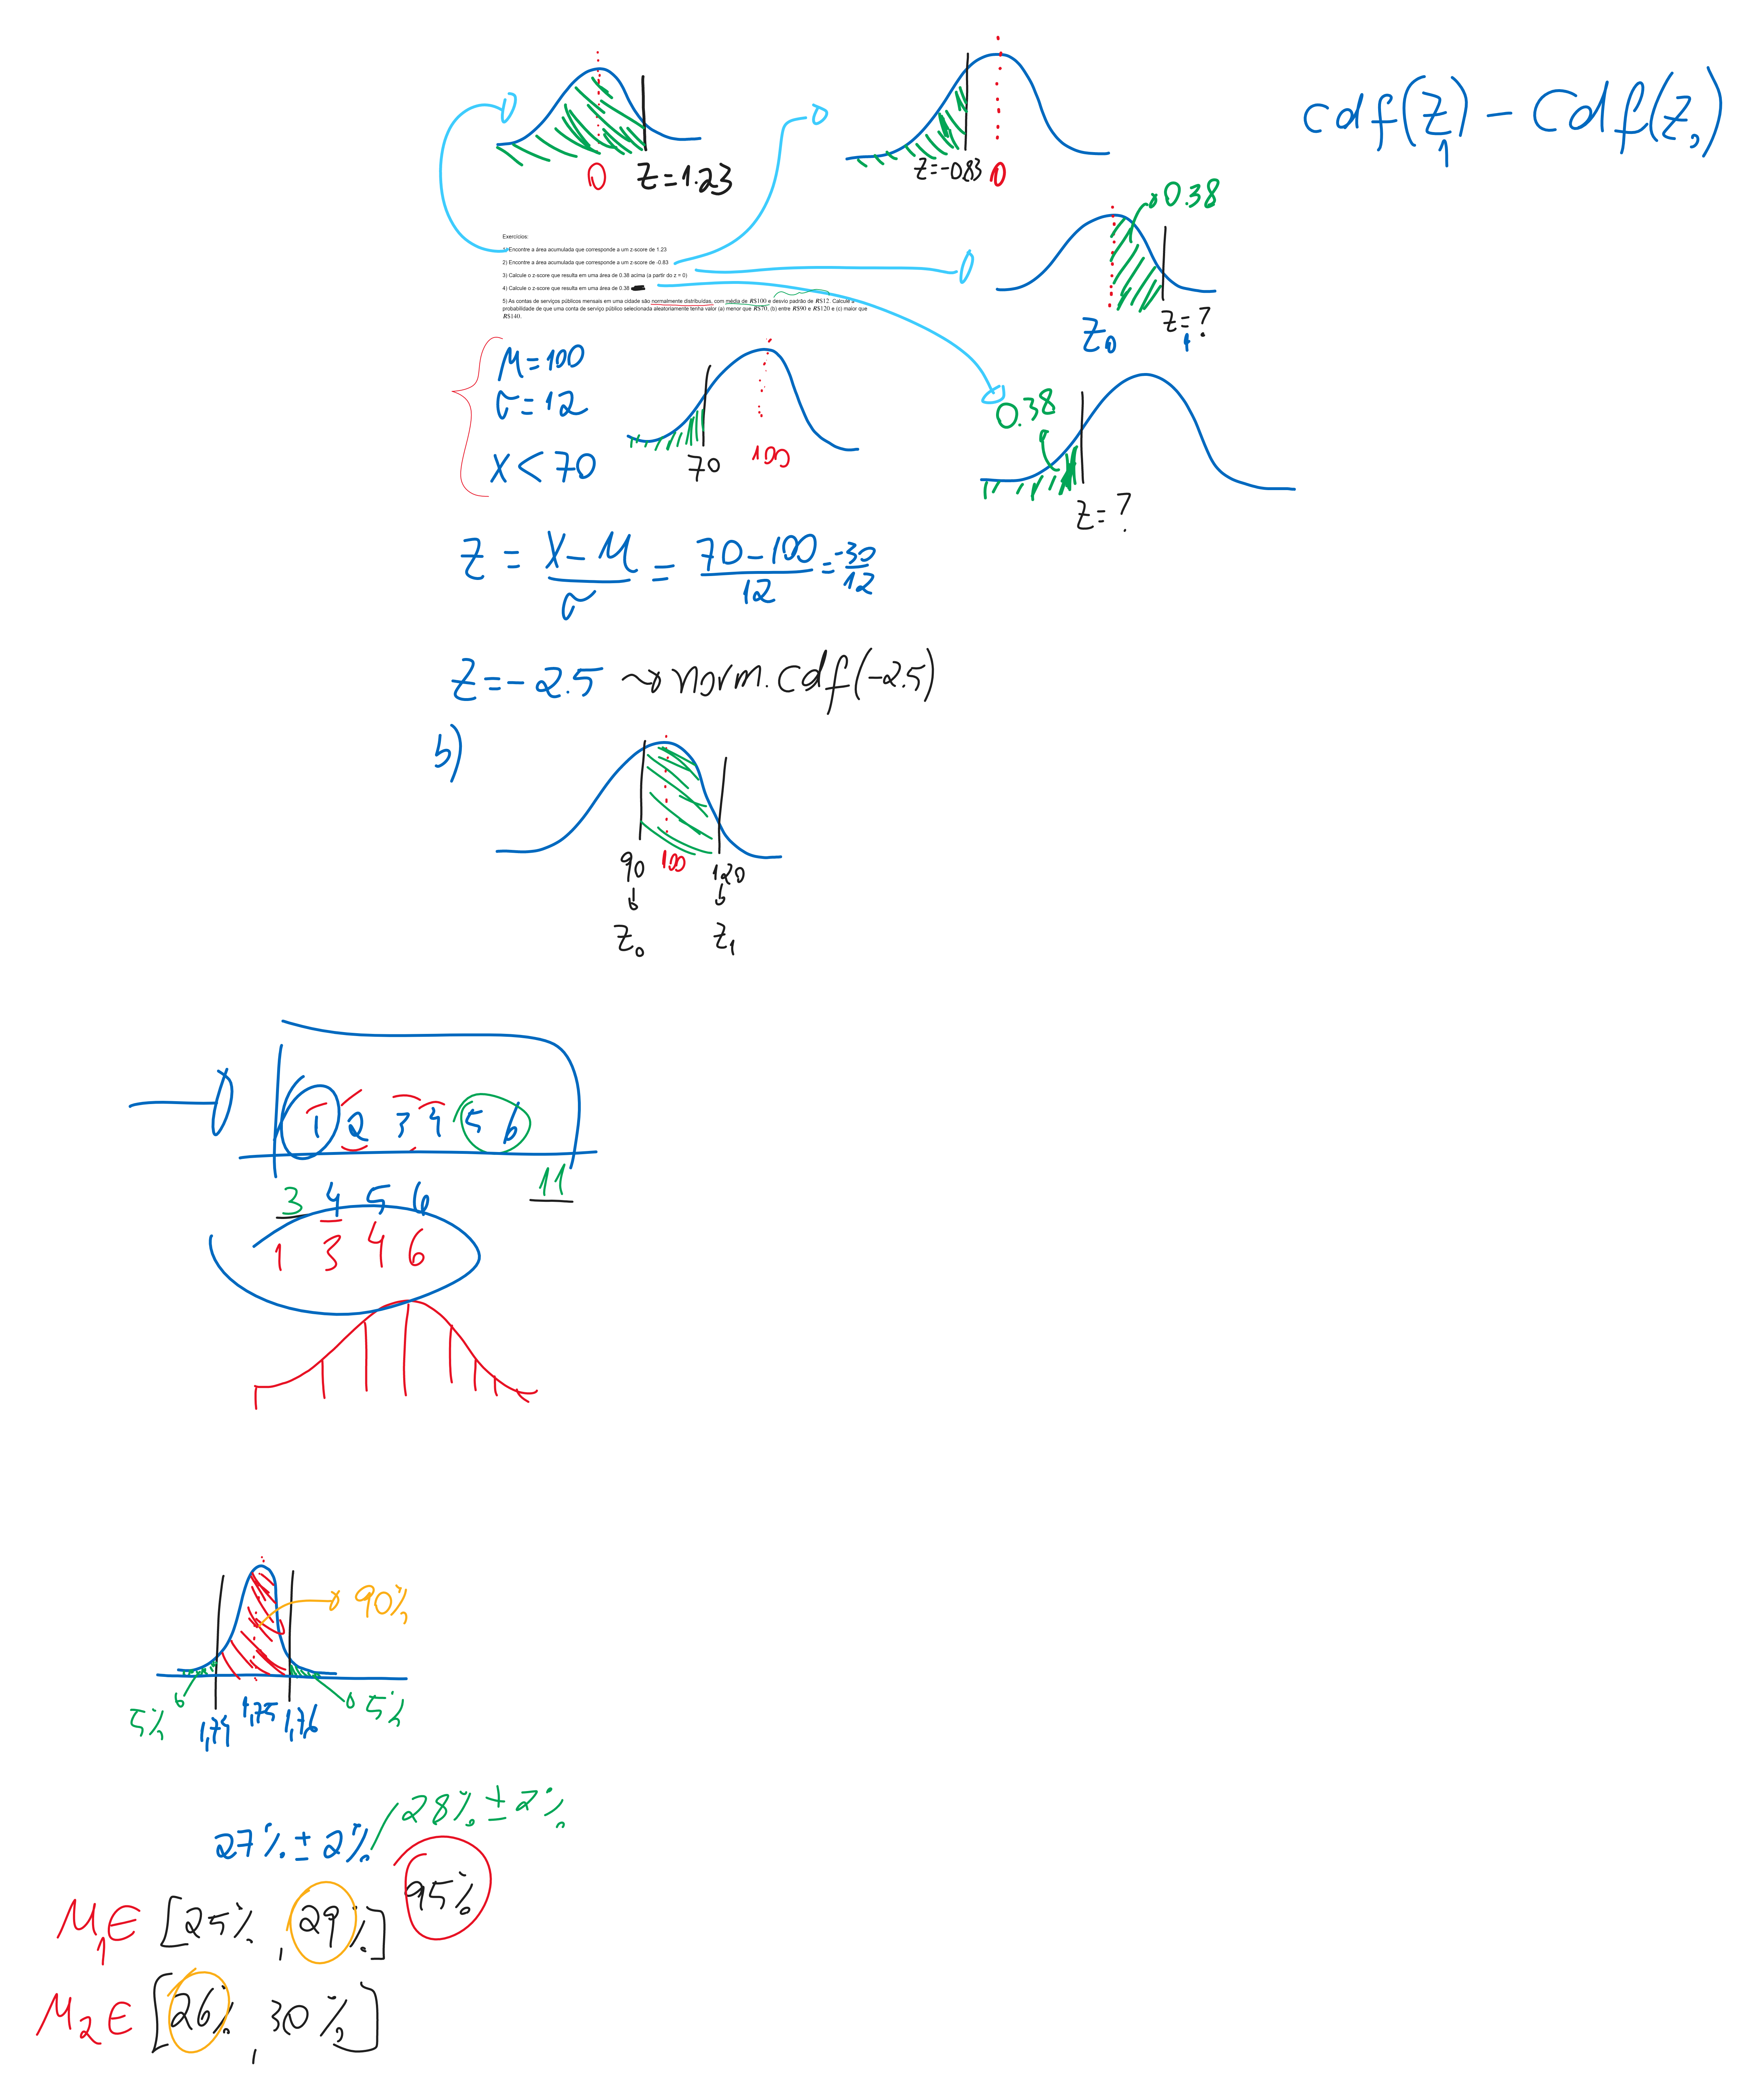 cdf(z₁) - Cdf(z₀)
0 Z=1.23
Z=-0.83 0
0.38
Z₀ Z₁=?
Exercícios:
1) Encontre a área acumulada que corresponde a um z-score de 1.23
2) Encontre a área acumulada que corresponde a um z-score de -0.83
3) Calcule o z-score que resulta em uma área de 0.38 acima (a partir do z = 0)
4) Calcule o z-score que resulta em uma área de 0.38
5) As contas de serviços públicos mensais em uma cidade são normalmente distribuídas, com média de R$100 e desvio padrão de R$12. Calcule a
probabilidade de que uma conta de serviço público selecionada aleatoriamente tenha valor (a) menor que R$70, (b) entre R$90 e R$120 e (c) maior que
R$140.
μ=100
σ=12
X<70
70 100
0.38
Z=?
Z = X-μ/σ = 70-100/12 = -30/12
Z=-2.5 norm.cdf(-2.5)
b)
90 100 120
Z₀ Z₁
1 2 3 4 5 6
3 4 5 6 11
1 3 4 6
90%
5% 1,74 1,75 1,76 5%
27% ± 2% 28% ± 2%
95%
μ₁ ∈ [25%, 29%]
μ₂ ∈ [26%, 30%]